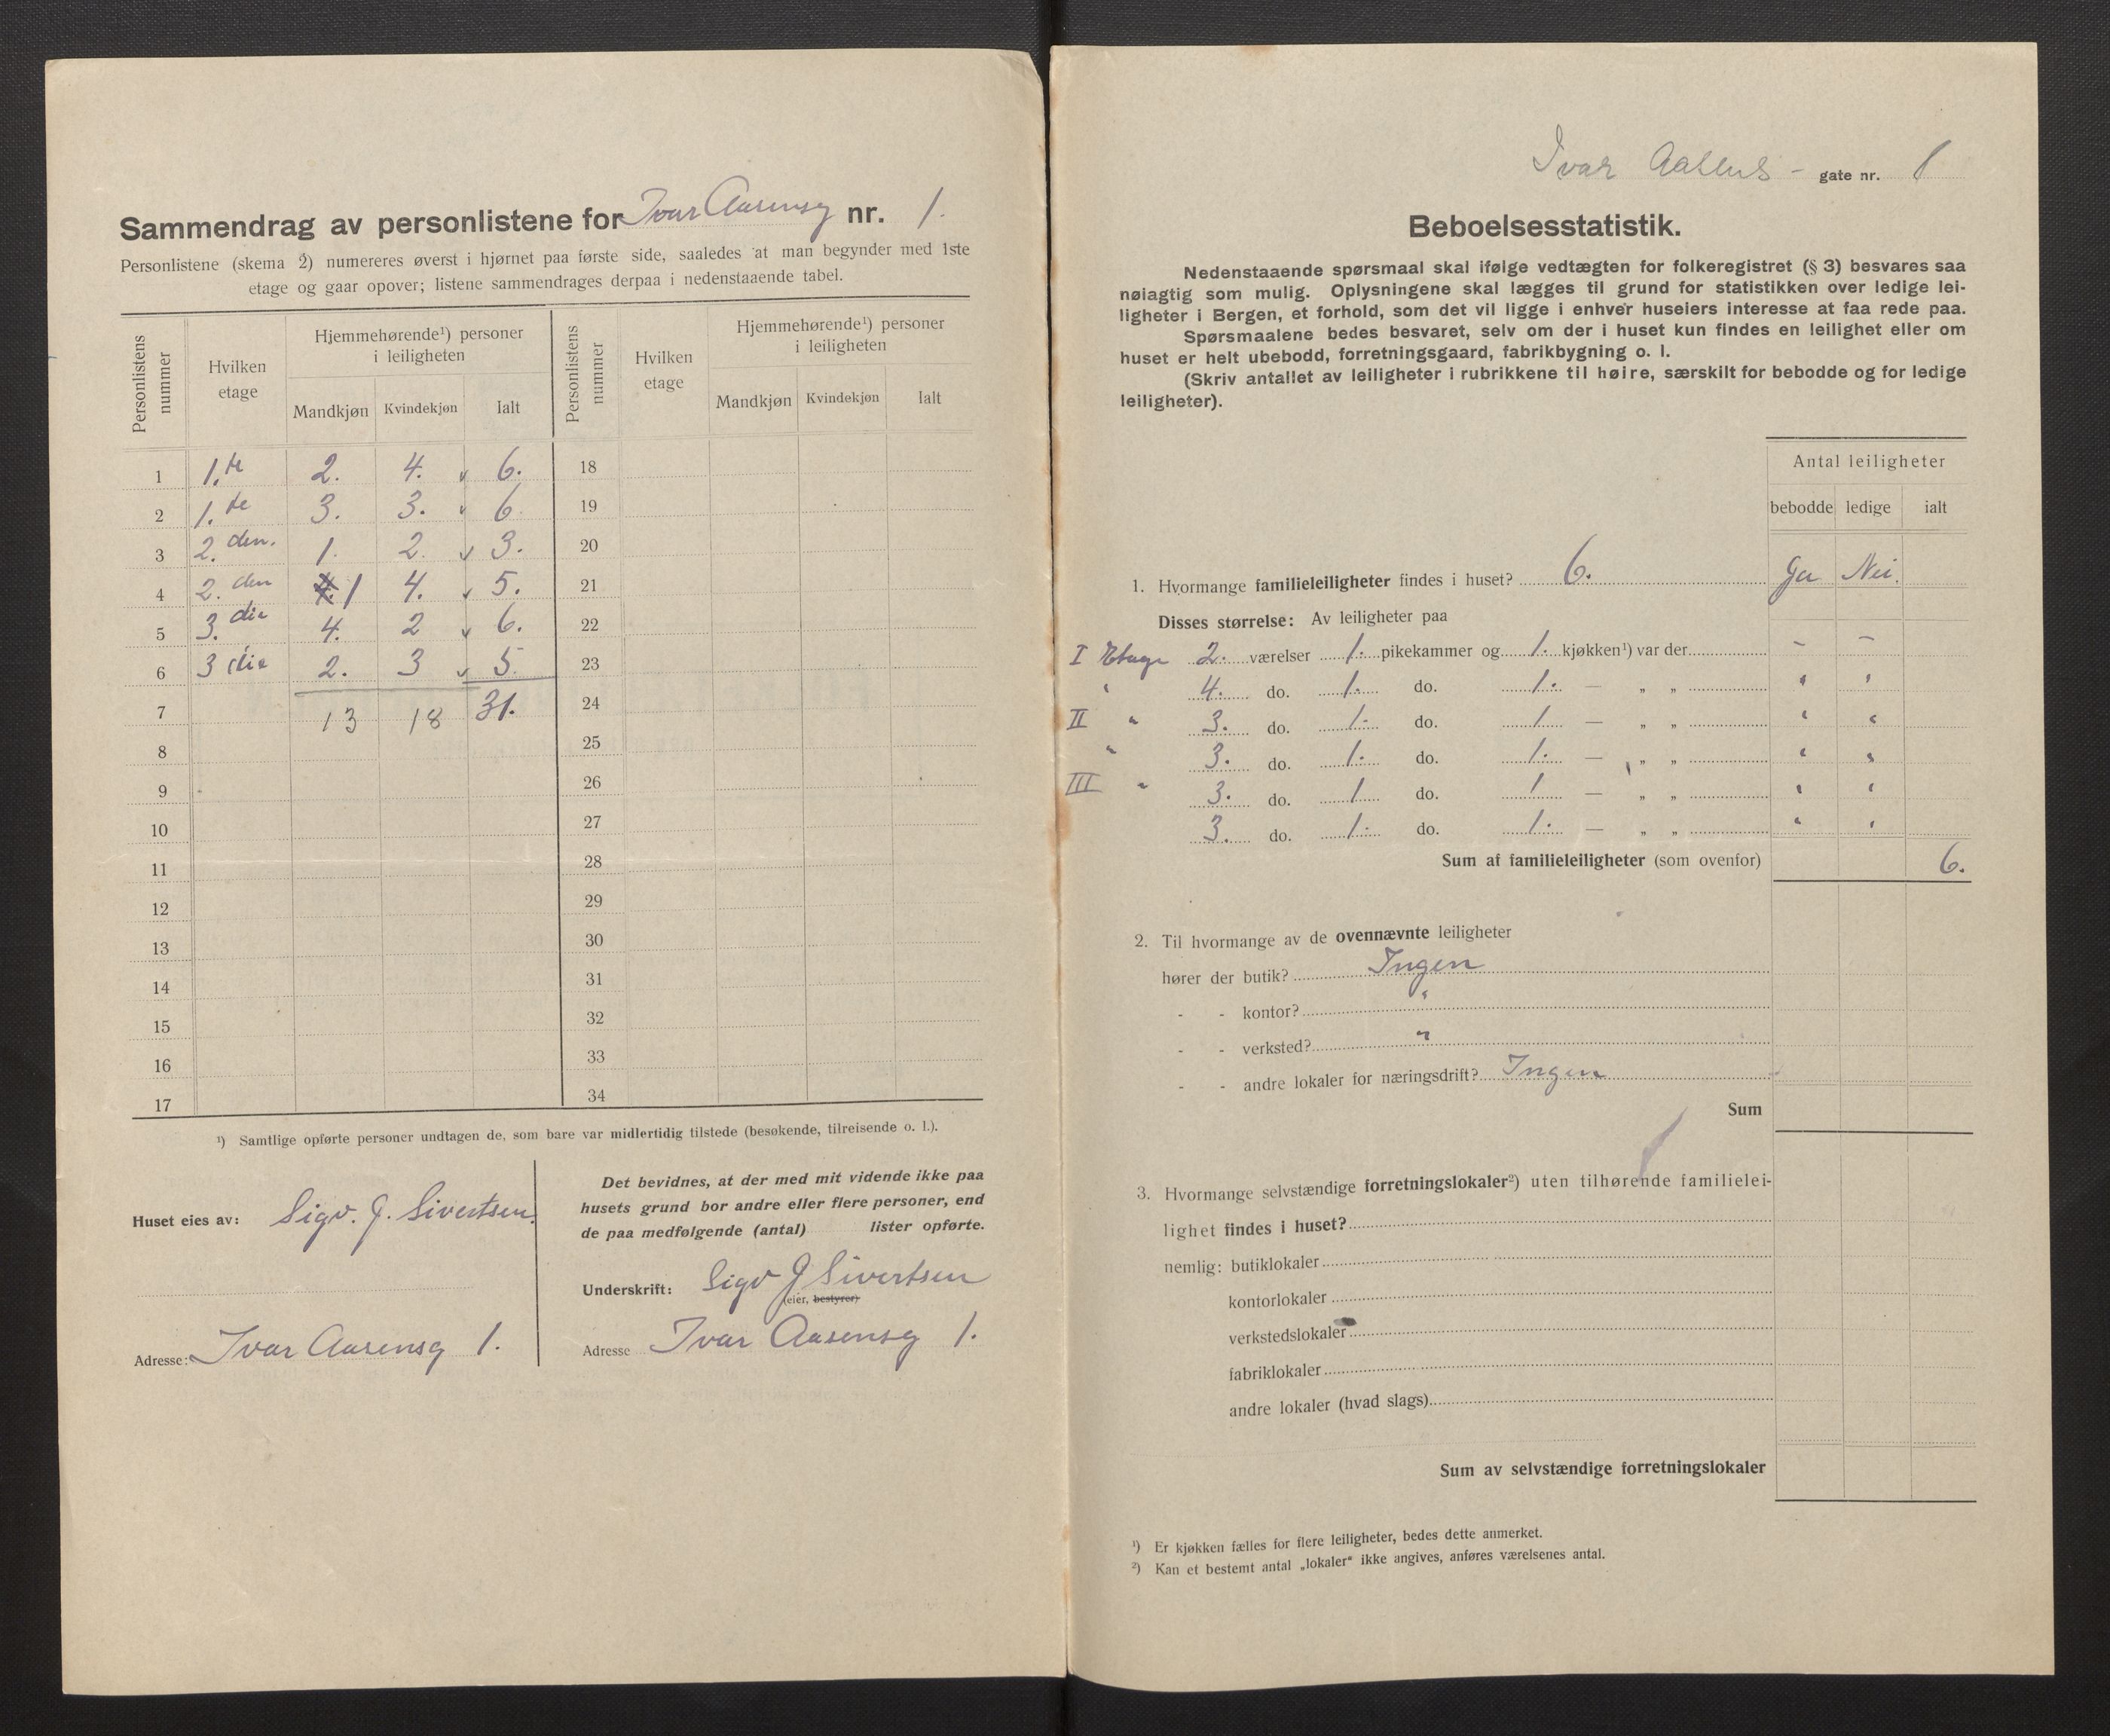 Sammendrag av personlistene for Ivar Aasensg nr. 1.
Personlistene (skema 2) numereres øverst i hjørnet paa første side, saaledes at man begynder med 1ste
etage og gaar opover; listene sammendrages derpaa i nedenstaaende tabel.
Personlistens nummer | Hvilken etage | Hjemmehørende¹) personer i leiligheten | Personlistens nummer | Hvilken etage | Hjemmehørende¹) personer i leiligheten
Mandkjøn | Kvindekjøn | Ialt | Mandkjøn | Kvindekjøn | Ialt
1 1.te 2. 4. v 6. 18
2 1.te 3. 3. v 6. 19
3 2.den. 1. 2. v 3. 20
4 2.den 1 4. v 5. 21
5 3.die 4. 2 v 6. 22
6 3 die 2. 3 v 5. 23
7 13 18 31. 24
8 25
9 26
10 27
11 28
12 29
13 30
14 31
15 32
16 33
17 34
¹) Samtlige opførte personer undtagen de, som bare var midlertidig tilstede (besøkende, tilreisende o. l.).
Huset eies av: Sigv. J. Sivertsen.
Adresse: Ivar Aasensg 1.
Det bevidnes, at der med mit vidende ikke paa
husets grund bor andre eller flere personer, end
de paa medfølgende (antal) lister opførte.
Underskrift: Sigv J Sivertsen
(eier, bestyrer)
Adresse Ivar Aasensg 1.
Ivar Aasens - gate nr. 1
Beboelsesstatistik.
Nedenstaaende spørsmaal skal ifølge vedtægten for folkeregistret (§ 3) besvares saa
nøiagtig som mulig. Oplysningene skal lægges til grund for statistikken over ledige lei-
ligheter i Bergen, et forhold, som det vil ligge i enhver huseiers interesse at faa rede paa.
Spørsmaalene bedes besvaret, selv om der i huset kun findes en leilighet eller om
huset er helt ubebodd, forretningsgaard, fabrikbygning o. l.
(Skriv antallet av leiligheter i rubrikkene til høire, særskilt for bebodde og for ledige
leiligheter).
Antal leiligheter
bebodde ledige ialt
1. Hvormange familieleiligheter findes i huset? 6. Ja Nei.
Disses størrelse: Av leiligheter paa
I Etage 2. værelser 1. pikekammer og 1. kjøkken¹) var der - -
" 4. do. 1. do. 1. — „ „ " "
II " 3. do. 1. do. 1 — „ „ " "
" 3. do. 1. do. 1. — „ „ " "
III " 3. do. 1 do. 1 — „ „ " "
3. do. 1. do. 1. — „ „ " "
Sum af familieleiligheter (som ovenfor) 6.
2. Til hvormange av de ovennævnte leiligheter
hører der butik? Ingen
- - kontor? "
- - verksted? "
- - andre lokaler for næringsdrift? Ingen
Sum
3. Hvormange selvstændige forretningslokaler²) uten tilhørende familielei-
lighet findes i huset?
nemlig: butiklokaler
kontorlokaler
verkstedslokaler
fabriklokaler
andre lokaler (hvad slags)
Sum av selvstændige forretningslokaler
¹) Er kjøkken fælles for flere leiligheter, bedes dette anmerket.
²) Kan et bestemt antal „lokaler“ ikke angives, anføres værelsenes antal.